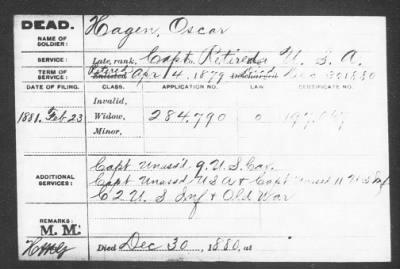 DEAD.
NAME OF SOLDIER: Hagen, Oscar
SERVICE: Late rank, Capt Retired U. S. A.
TERM OF SERVICE: Retired Enlisted Apr 14, 1879 Discharged Died Dec 30 1880
DATE OF FILING. CLASS. APPLICATION NO. LAW CERTIFICATE NO.
Invalid,
1881. Feb 23 Widow, 284.790 0
Minor,
Capt Unass'd 9. U. S. Cav.
ADDITIONAL SERVICES: Capt Unass'd U S A & Capt Unass'd 11 U S Inf
C 2 U. S Inf & Old War
REMARKS: M. M.
Died Dec 30, 1880, at